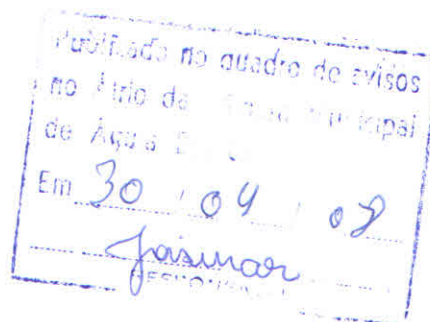 Publicado no quadro de avisos
no Átrio da Municipal
de Água
Em 30 / 04 / 08